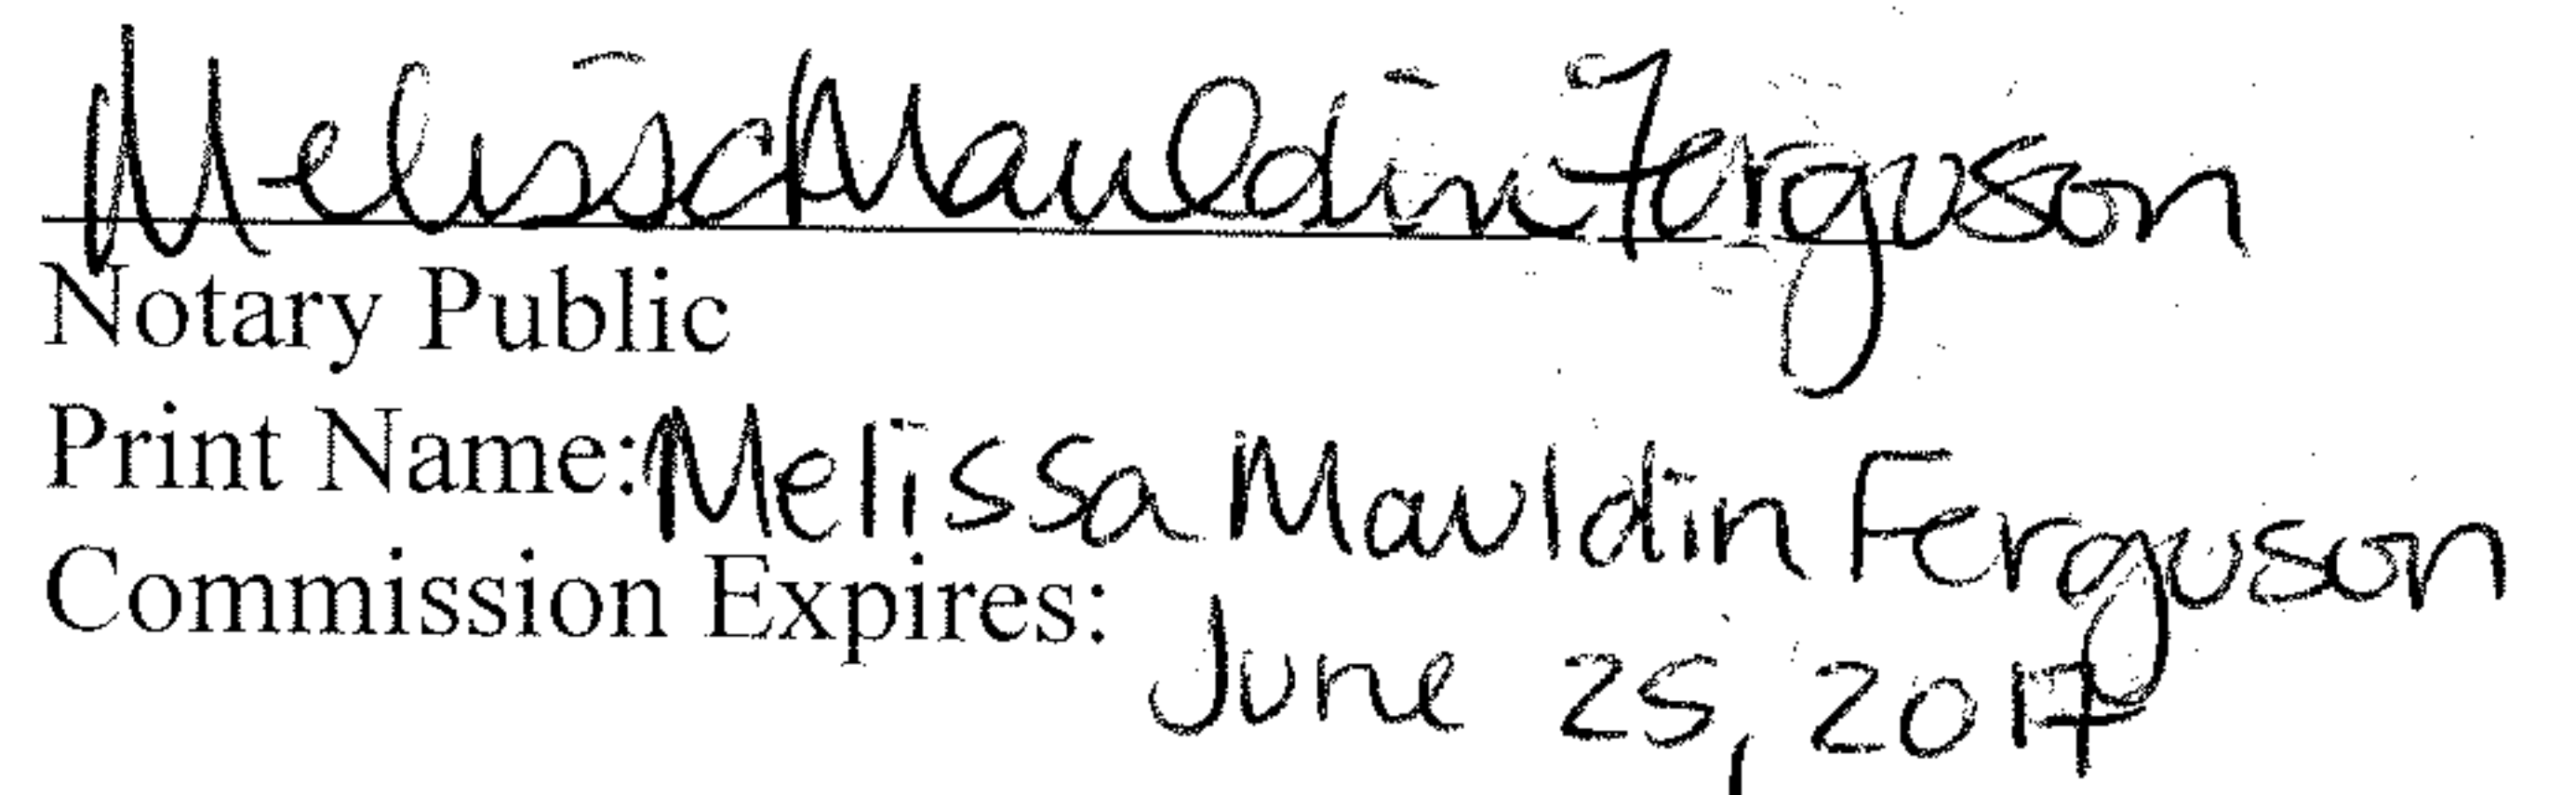 Melissa Mauldin Ferguson
Notary Public
Print Name: Melissa Mauldin Ferguson
Commission Expires:
June 25, 2017